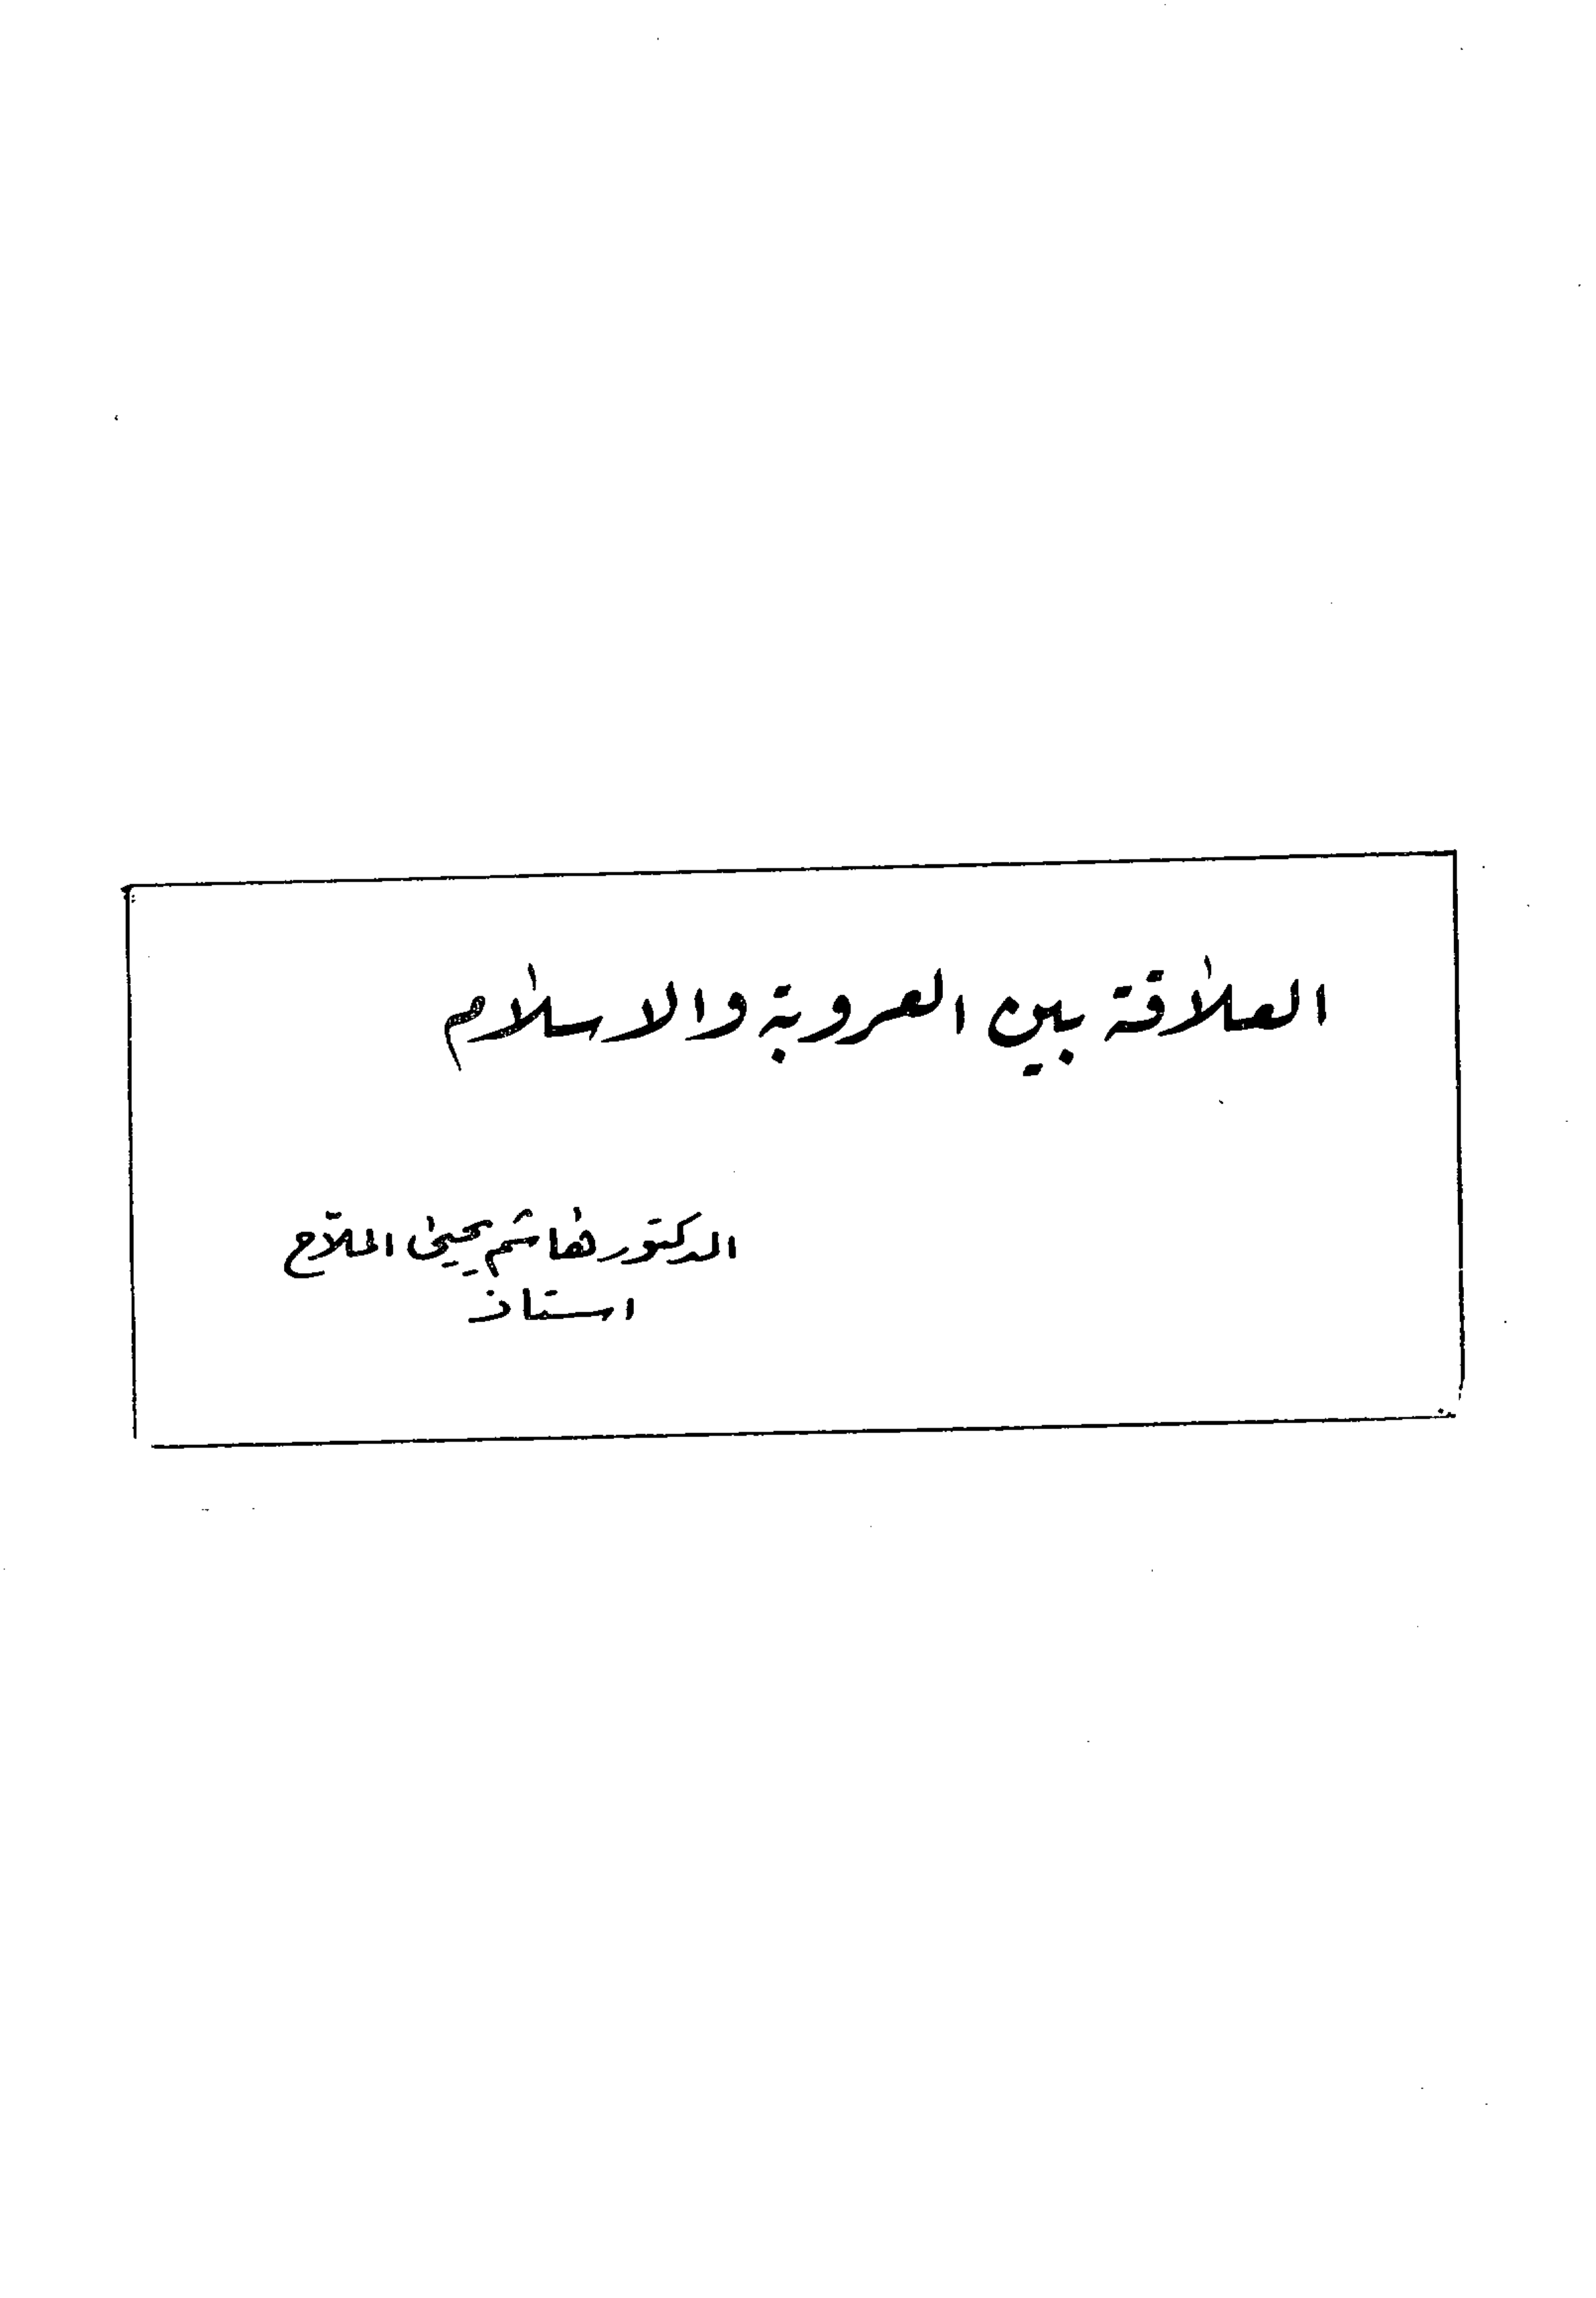 العلاقة بين العروبة والاسلام
الدكتور هاشم يحيى الملاّح
استاذ